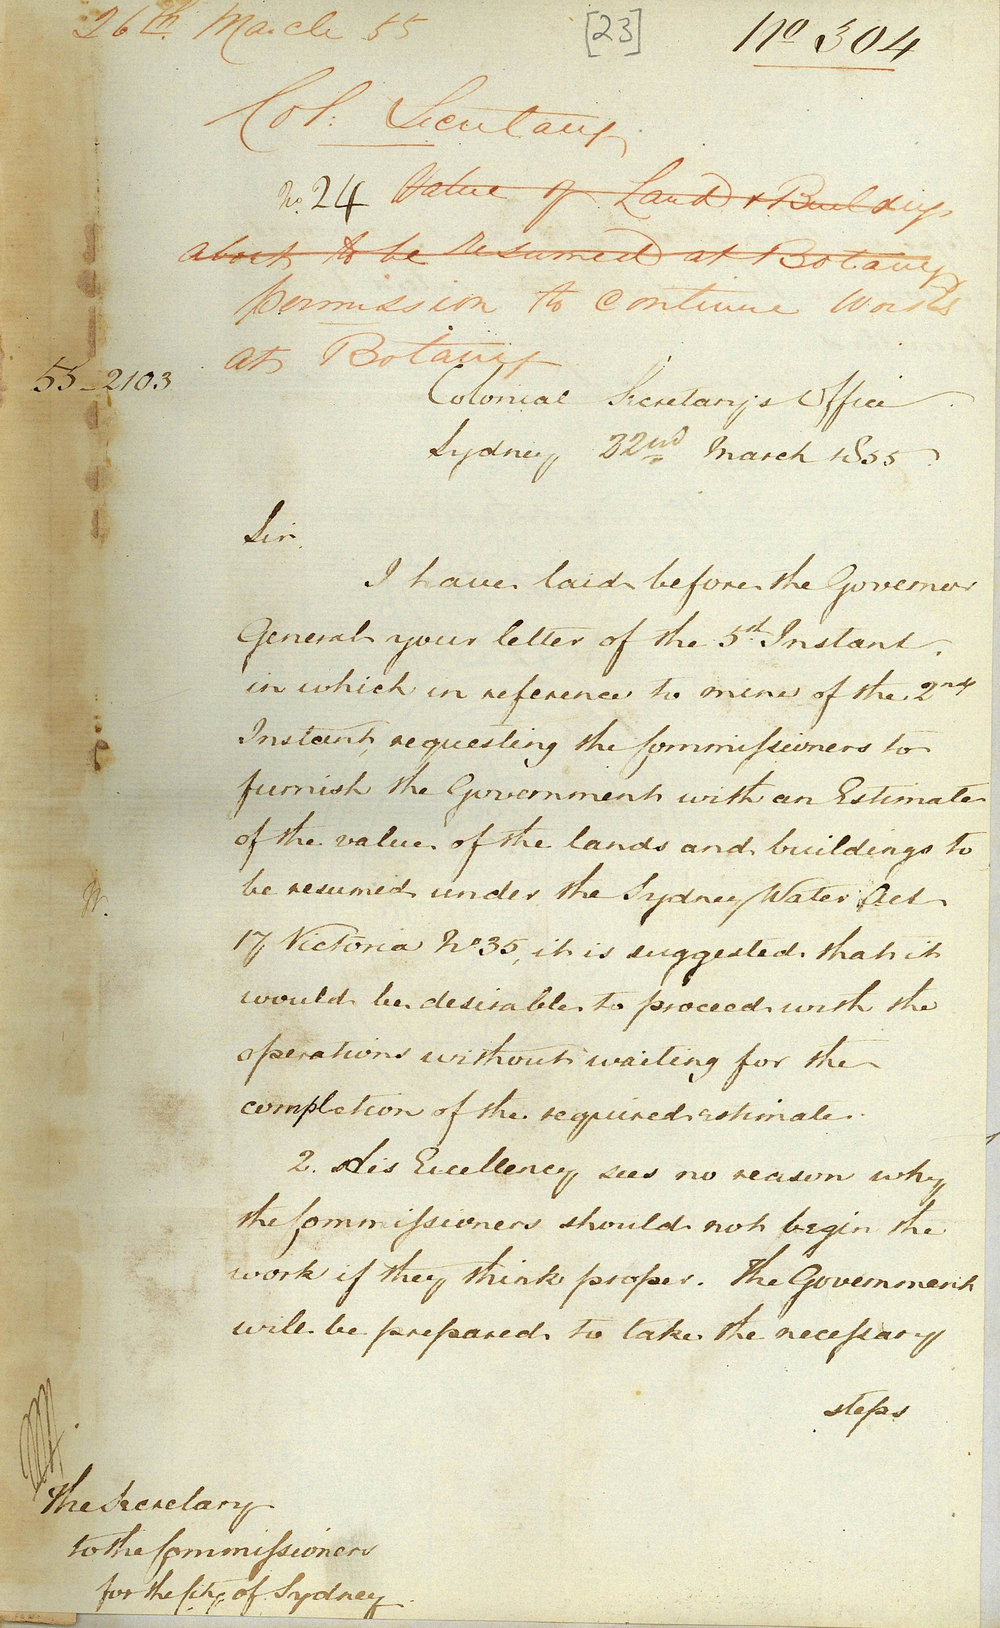 26th March 55
[23]
No 304
Col: Secretary
No. 24 Value of Land & Buildings
about to be resumed at Botany
permission to continue works
at Botany
55-2103
Colonial Secretary's Office
Sydney 22nd March 1855
Sir,
I have laid before the Governor
General your letter of the 5th Instant,
in which in reference to mine of the 2nd
Instant requesting the Commissioners to
furnish the Government with an Estimate
of the value of the lands and buildings to
be resumed under the Sydney Water Act
17 Victoria No 35, it is suggested that it
would be desirable to proceed with the
operations without waiting for the
completion of the required estimate.
2. His Excellency sees no reason why
the Commissioners should not begin the
work if they think proper. The Government
will be prepared to take the necessary
steps
The Secretary
to the Commissioners
for the City of Sydney